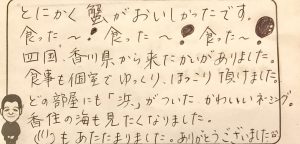 とにかく蟹がおいしかったです。
食った〜! 食った〜! 食た〜!
四国、香川県から来たかいがありました。
食事も個室でゆっくり、ほっこり頂けました。
どの部屋にも「浜」がついた かわいいネーミング。
香住の海も見たくなりました。
心もあたたまりました。ありがとうございました